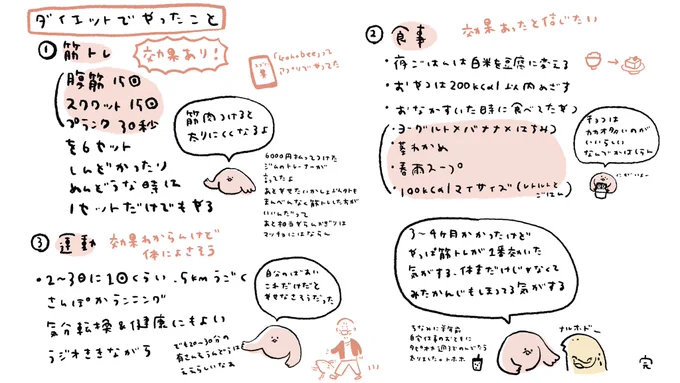 ダイエットでやったこと
① 筋トレ
効果あり!
って
アプリでやってた
腹筋 15回
スクワット 15回
プランク 30秒
を6セット
しんどかったり
めんどうな時は
1セットだけでもやる
筋肉つけると
太りにくくなるよ
6000円払ってつけた
ジムのトレーナーが
言ってたよ
あとやせたいかしょ以外も
まんべんなく筋トレした方が
いいんだって
あと相当やらんかぎりは
マッチョにはならん
② 食事
効果あったと信じたい
・夜ごはんは白米を豆腐に変える
・おやつは200kcal以内めざす
・おなかすいた時に食べてたやつ
・ヨーグルト×バナナ×はちみつ
・茎わかめ
・春雨スープ
・100kcalマイサイズ(レトルトとごはん)
チョコは
カカオ多いのが
いいらしい
なんでかはしらん
にがいよー
③ 運動
効果わからんけど
体によさそう
・2〜3日に1回くらい、5kmうごく
さんぽかランニング
気分転換&健康にもよい
ラジオききながら
自分のばあい
これだけだと
やせなさそうだった
でも20〜30分の
有さんそうんどうは
ええらしいなぁ
3〜4ヶ月かかったけど
やっぱ筋トレが1番効いた
気がする、体重だけじゃなくて
みたかんじもしまってる気がする
ちなみに半年前
自宅仕事のおともに
タピオカ週3でのんでたら
太りました。オホホ
ナルホドー
完